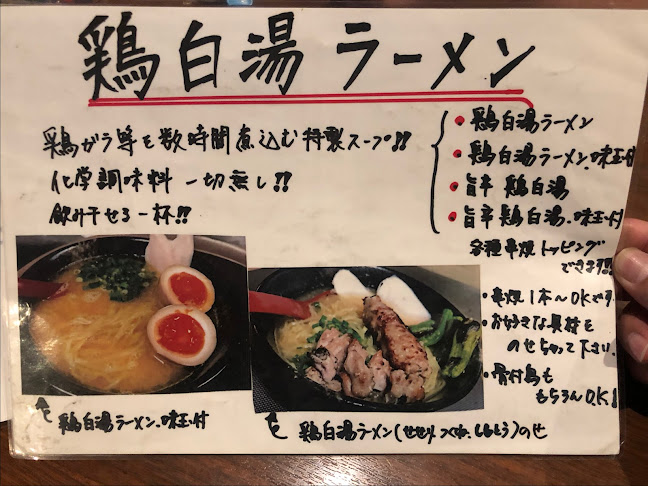 鶏白湯ラーメン
鶏ガラ等を数時間煮込む特製スープ!!
化学調味料一切無し!!
飲み干せる一杯!!
・鶏白湯ラーメン
・鶏白湯ラーメン.味玉付
・旨辛 鶏白湯
・旨辛 鶏白湯.味玉付
各種串焼トッピング
できます!!!
・串焼1本〜OKです
・お好きな具材を
のせちゃって下さい.
・骨付鳥も
もちろんO.K!
鶏白湯ラーメン.味玉付
鶏白湯ラーメン(せせり つくね.ししとう)のせ